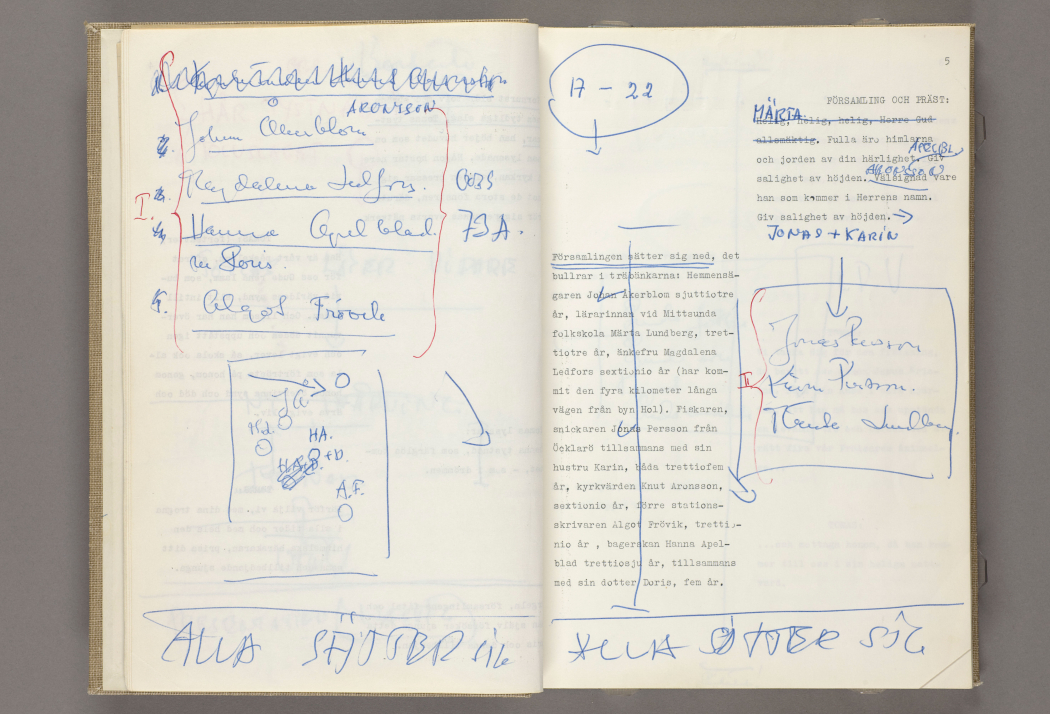 ARONSSON
Johan Åkerblom
Magdalena Ledfors.
OBS
I.
Hanna Apelblad.
73A.
Doris.
Algot Frövik
Md.
HA.
+D.
A.F.
ALLA SÄTTER SIG
5
17 - 22
FÖRSAMLING OCH PRÄST:
MÄRTA
Helig, helig, helig, Herre Gud
allsmäktig. Fulla äro himlarna
och jorden av din härlighet. Giv
salighet av höjden. Välsignad vare
ARONSSON
han som kommer i Herrens namn.
Giv salighet av höjden.
JONAS + KARIN
Församlingen sätter sig ned, det
bullrar i träbänkarna: Hemmensä-
garen Johan Åkerblom sjuttiotre
år, lärarinnan vid Mittsunda
folkskola Märta Lundberg, tret-
tiotre år, änkefru Magdalena
Ledfors sextionio år (har kom-
mit den fyra kilometer långa
vägen från byn Hol). Fiskaren,
snickaren Jonas Persson från
Öcklarö tillsammans med sin
hustru Karin, båda trettiofem
år, kyrkvärden Knut Aronsson,
sextionio år, förre stations-
skrivaren Algot Frövik, trettio-
nio år , bagerskan Hanna Apel-
blad trettiosju år, tillsammans
med sin dotter Doris, fem år.
Jonas Persson
II
Karin Persson.
Märta Lundberg.
ALLA SÄTTER SIG